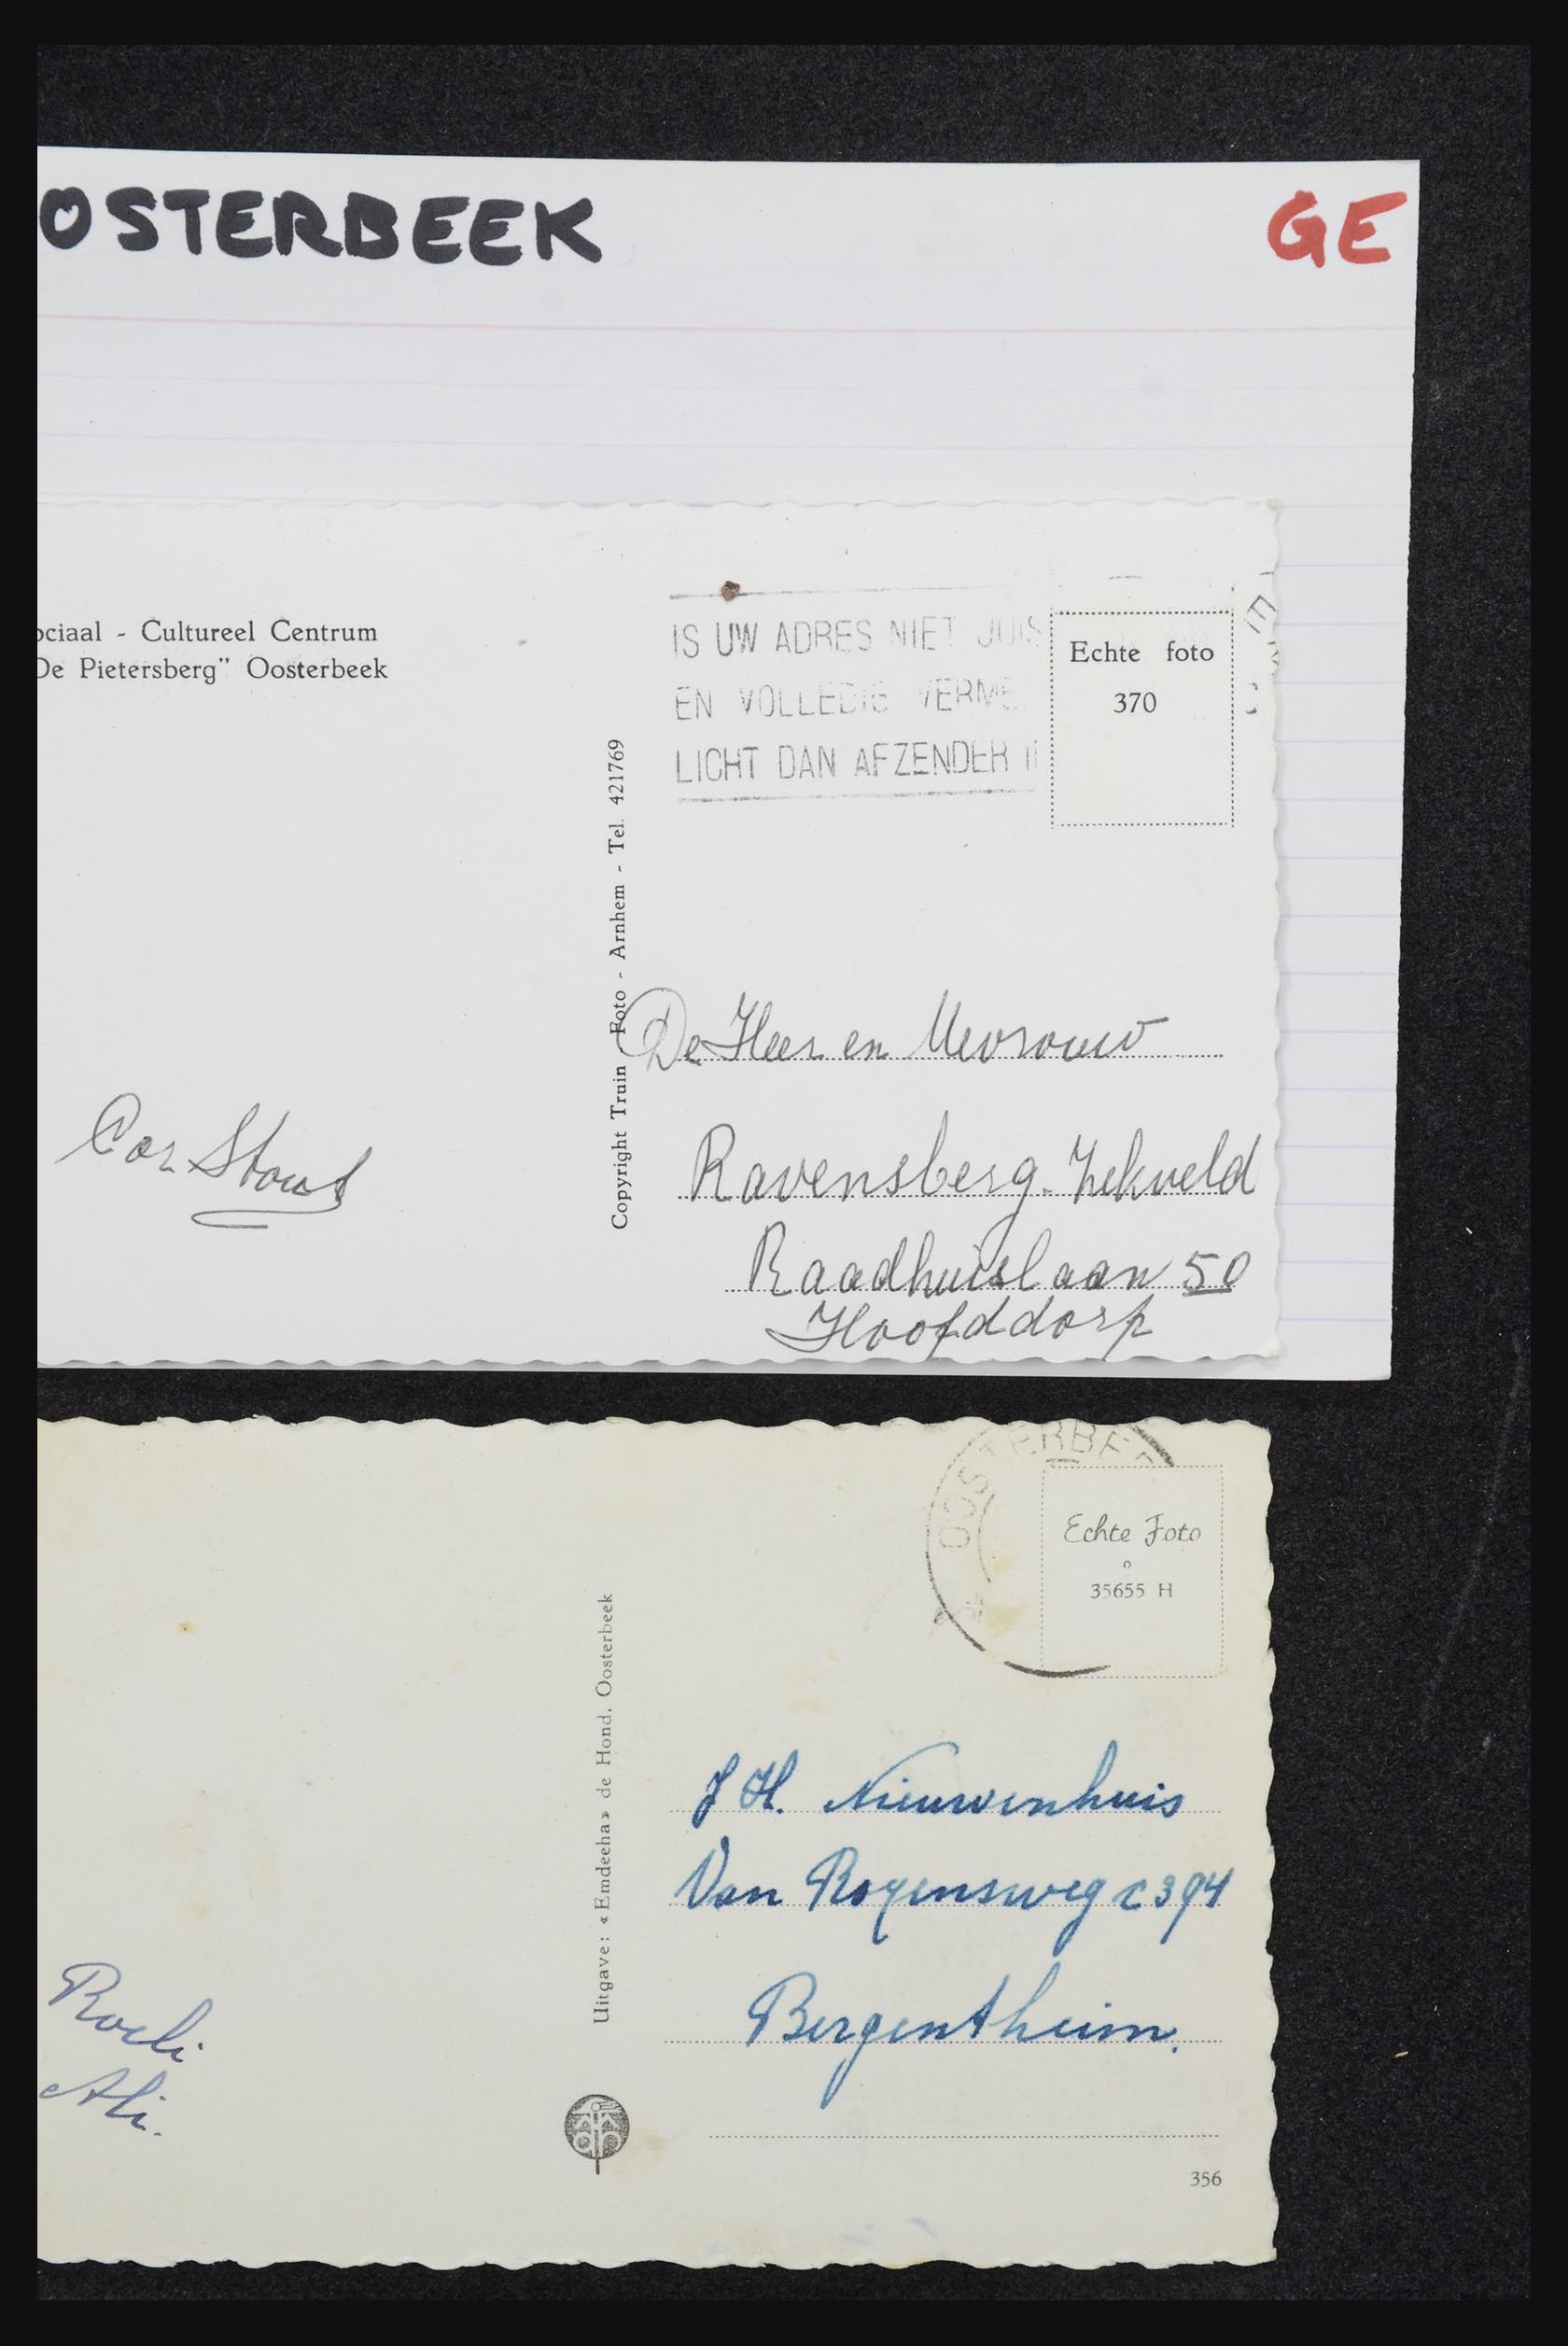 OSTERBEEK GE
ociaal - Cultureel Centrum
De Pietersberg" Oosterbeek
IS UW ADRES NIET JUIS
EN VOLLEDIG VERME
LICHT DAN AFZENDER
Echte foto
370
Copyright Truin Foto - Arnhem - Tel. 421769
Cor Stout
De Heer en Mevrouw
Ravensberg-Zekveld
Raadhuislaan 50
Hoofddorp
OOSTERBEE
Echte Foto
35655 H
Uitgave: «Emdeeha» de Hond, Oosterbeek
J H. Nieuwenhuis
Van Royensweg C394
Bergentheim.
Roeli
Ali.
356